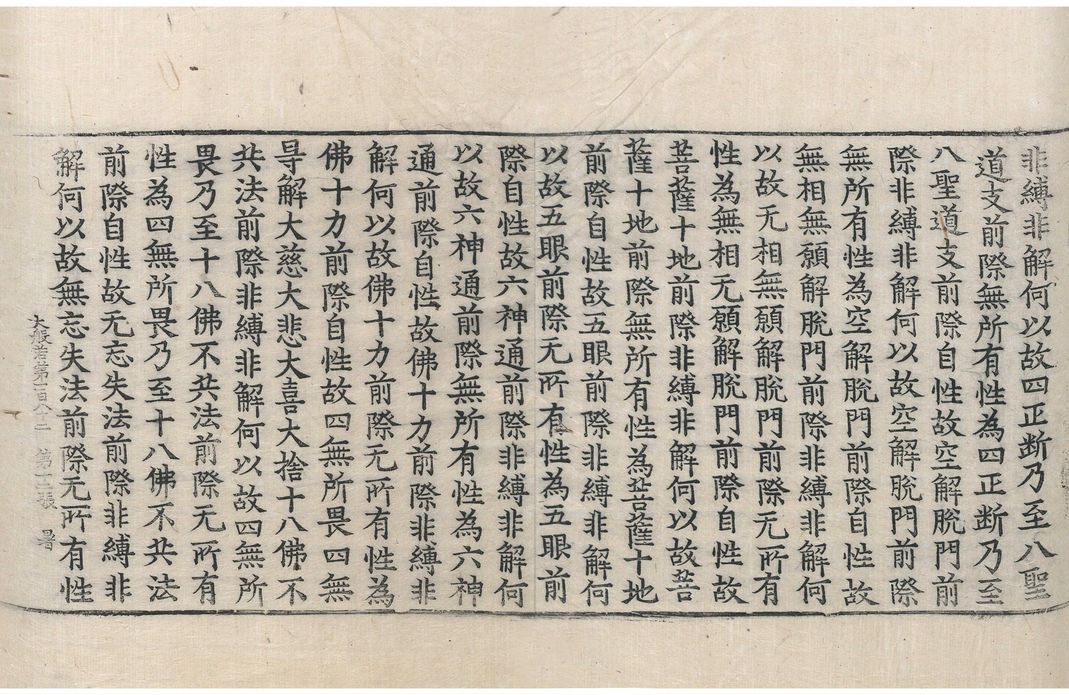 非縛非解何以故四正断乃至八聖
道支前際無所有性為四正断乃至
八聖道支前際自性故空解脫門前
際非縛非解何以故空解脫門前際
無所有性為空解脫門前際自性故
無相無願解脫門前際非縛非解何
以故无相無願解脫門前際无所有
性為無相无願解脫門前際自性故
菩薩十地前際非縛非解何以故菩
薩十地前際無所有性為菩薩十地
前際自性故五眼前際非縛非解何
以故五眼前際无所有性為五眼前
際自性故六神通前際非縛非解何
以故六神通前際無所有性為六神
通前際自性故佛十力前際非縛非
解何以故佛十力前際无所有性為
佛十力前際自性故四無所畏四無
导解大慈大悲大喜大捨十八佛不
共法前際非縛非解何以故四無所
畏乃至十八佛不共法前際无所有
性為四無所畏乃至十八佛不共法
前際自性故无忘失法前際非縛非
解何以故無忘失法前際无所有性
大般若第一百八十二 第 張